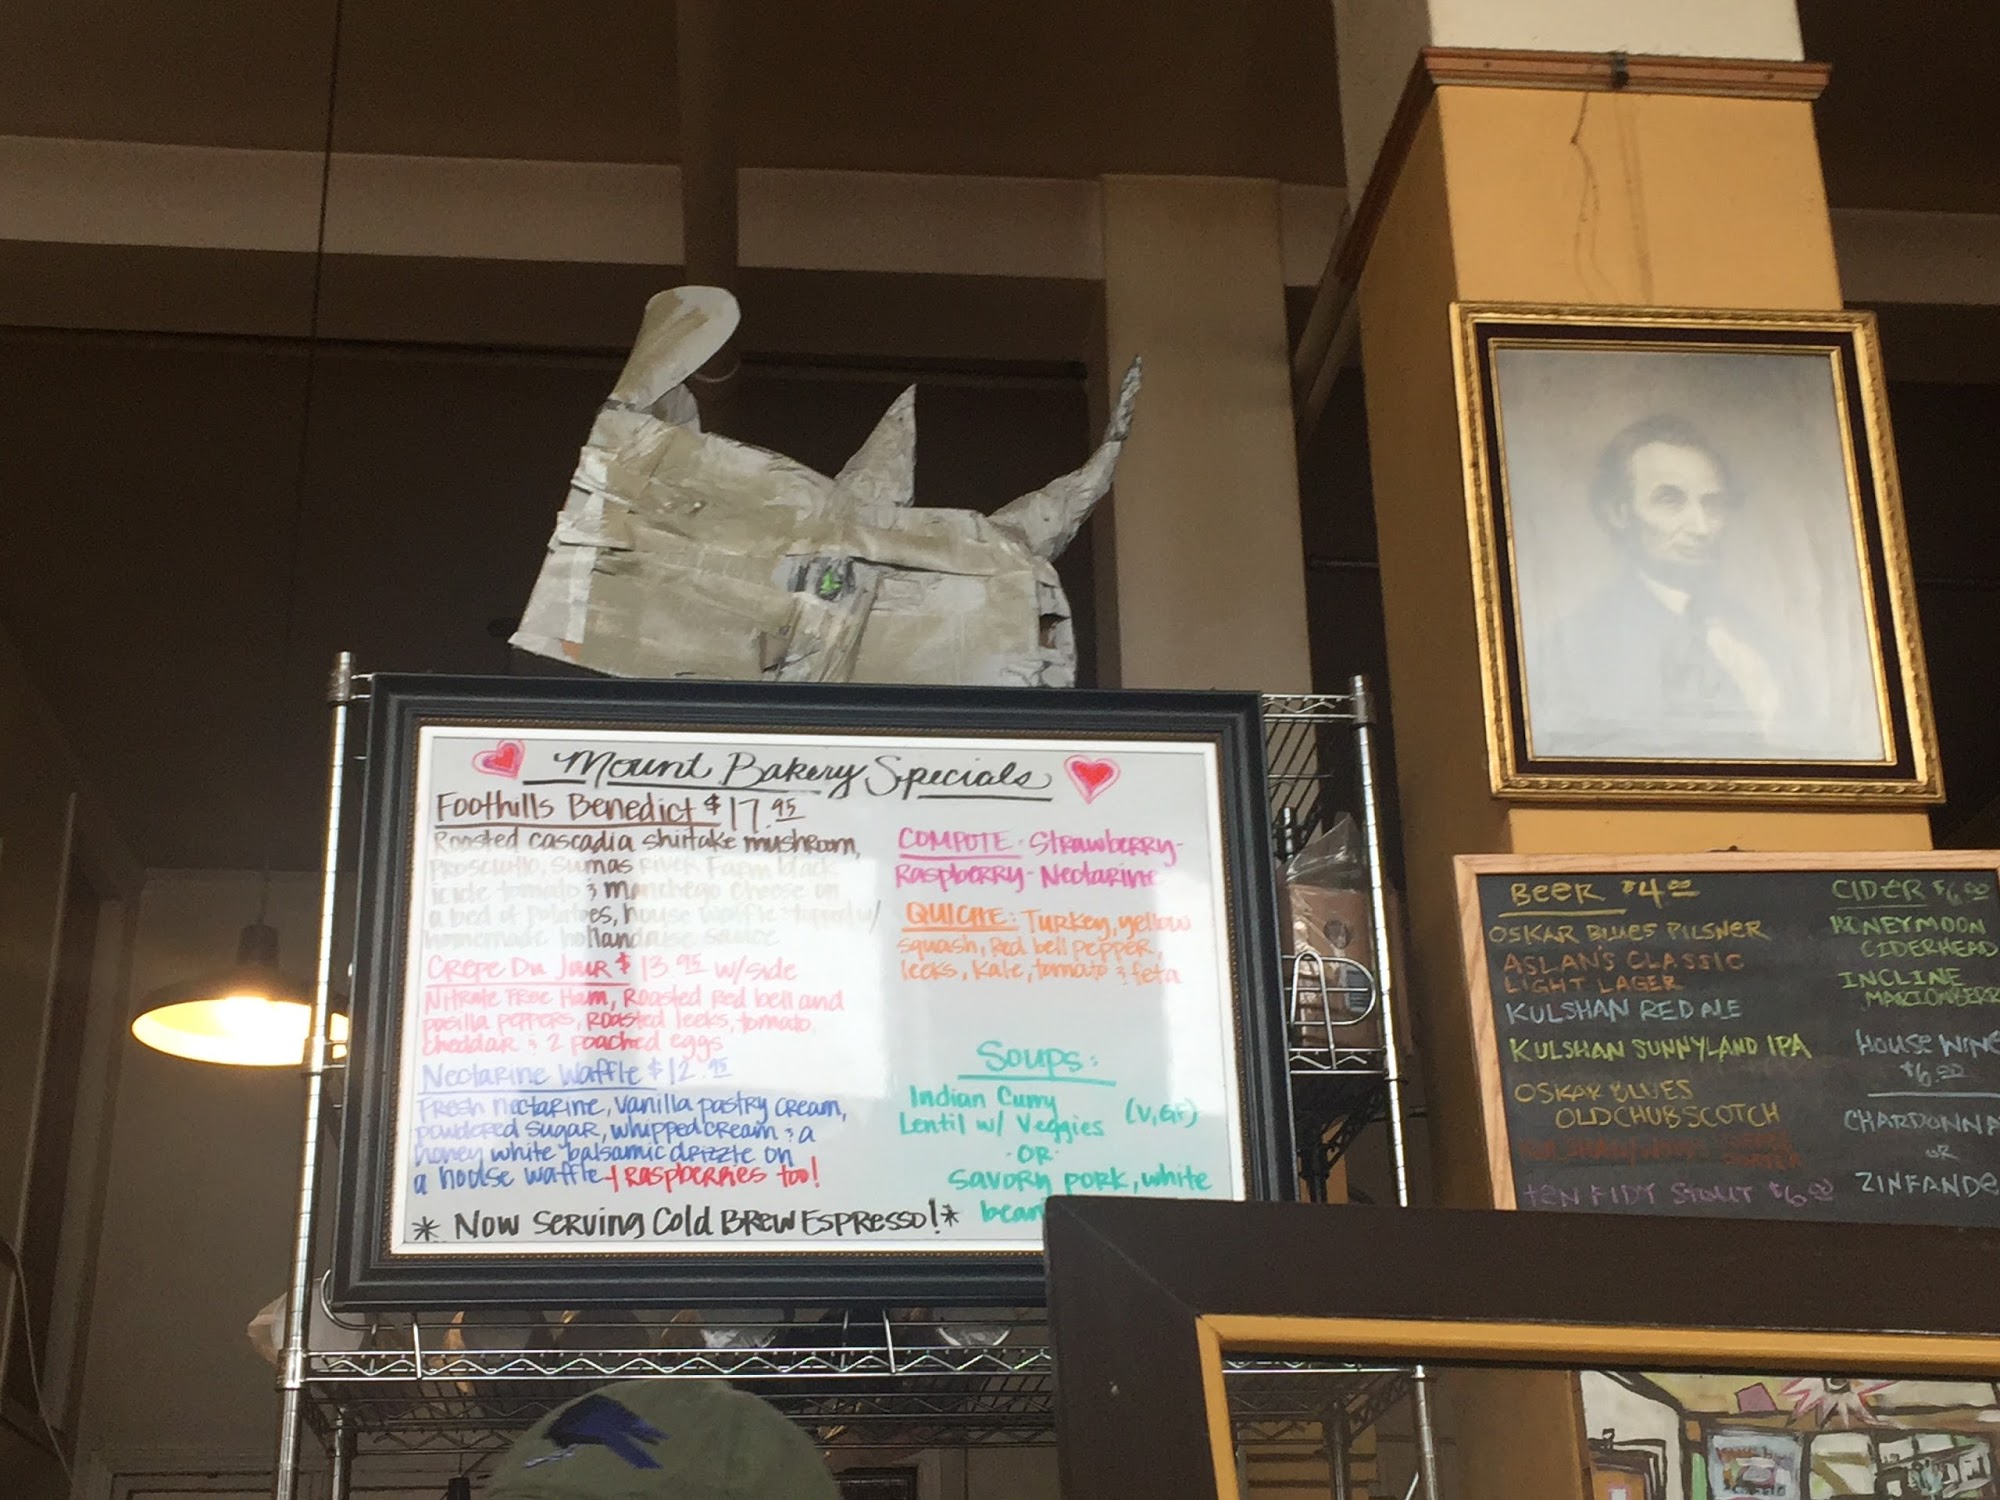 Mount Bakery Specials
Foothills Benedict $17.95
Roasted cascadia shiitake mushroom,
Prosciutto, Sumas River Farm black
icicle tomato & manchego cheese on
a bed of potatoes, house waffle topped w/
homemade hollandaise sauce
Crepe Du Jour $13.95 w/side
Nitrate Free Ham, Roasted Red bell and
pasilla peppers, Roasted leeks, tomato,
cheddar & 2 poached eggs
Nectarine Waffle $12.95
Fresh nectarine, vanilla pastry cream,
powdered sugar, whipped cream & a
honey white balsamic drizzle on
a house waffle + raspberries too!
* Now Serving Cold Brew Espresso! *
COMPOTE - Strawberry-
Raspberry - Nectarine
QUICHE: Turkey, yellow
squash, Red bell pepper,
leeks, Kale, tomato & feta
Soups:
Indian Curry
Lentil w/ Veggies (V,GF)
·OR·
Savory pork, white
bean
BEER $4.00
OSKAR BLUES PILSNER
ASLAN'S CLASSIC
LIGHT LAGER
KULSHAN RED ALE
KULSHAN SUNNYLAND IPA
OSKAR BLUES
OLD CHUB SCOTCH
TEN FIDY STOUT $6.00
CIDER $6.00
HONEYMOON
CIDERHEAD
INCLINE
MARIONBERR
HOUSE WINE
$6.00
CHARDONNA
OR
ZINFANDE